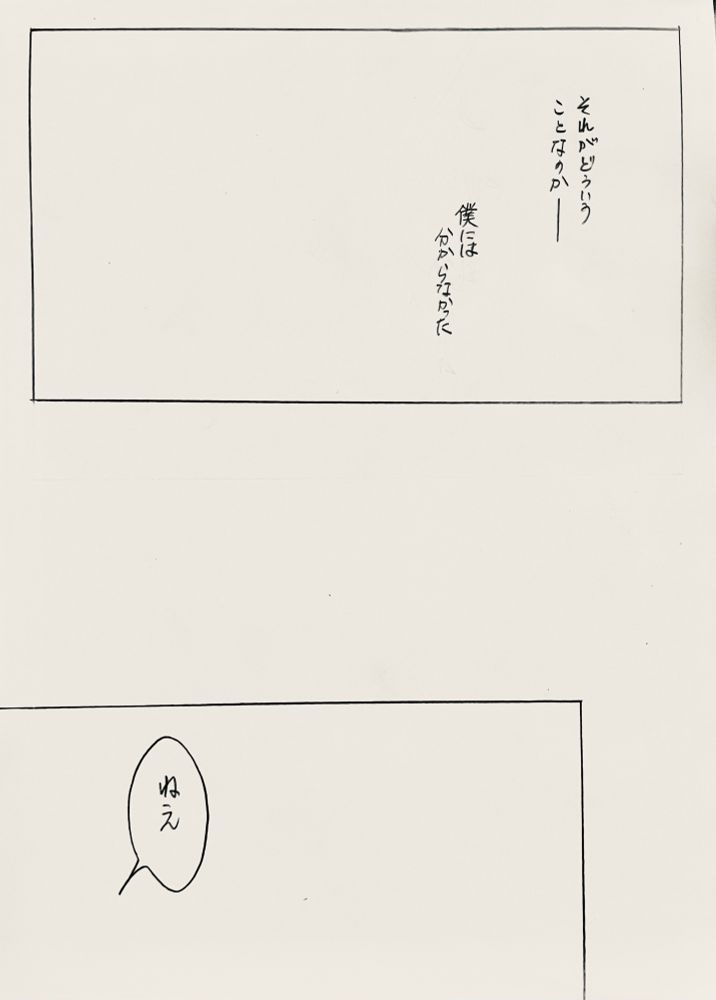 それがどういう
ことなのか――
僕には
分からなかった
ねえ